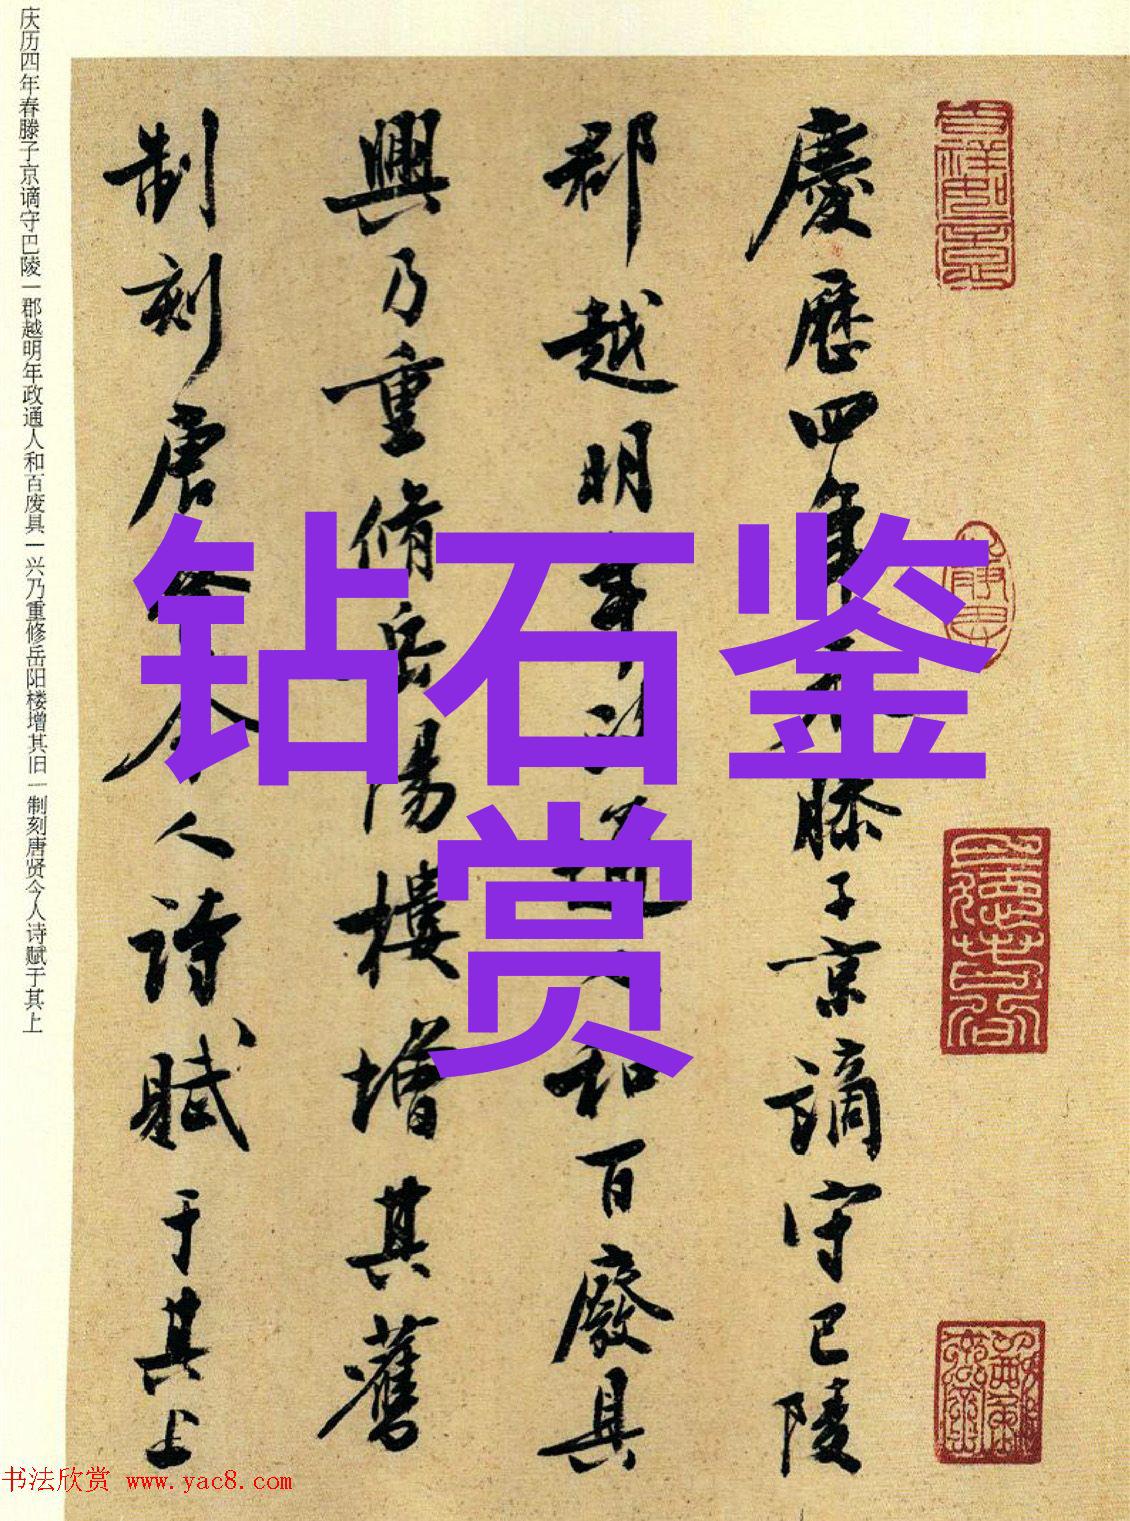 慶歷四年春滕子京謫守巴陵
郡越明年政通人和百廢具
興乃重脩岳陽樓增其舊
制刻唐賢今人詩賦于其上
庆历四年春滕子京谪守巴陵一郡越明年政通人和百废具一兴乃重修岳阳楼增其旧一制刻唐贤今人诗赋于其上
钻石鉴
赏
书法欣赏 www.yac8.com